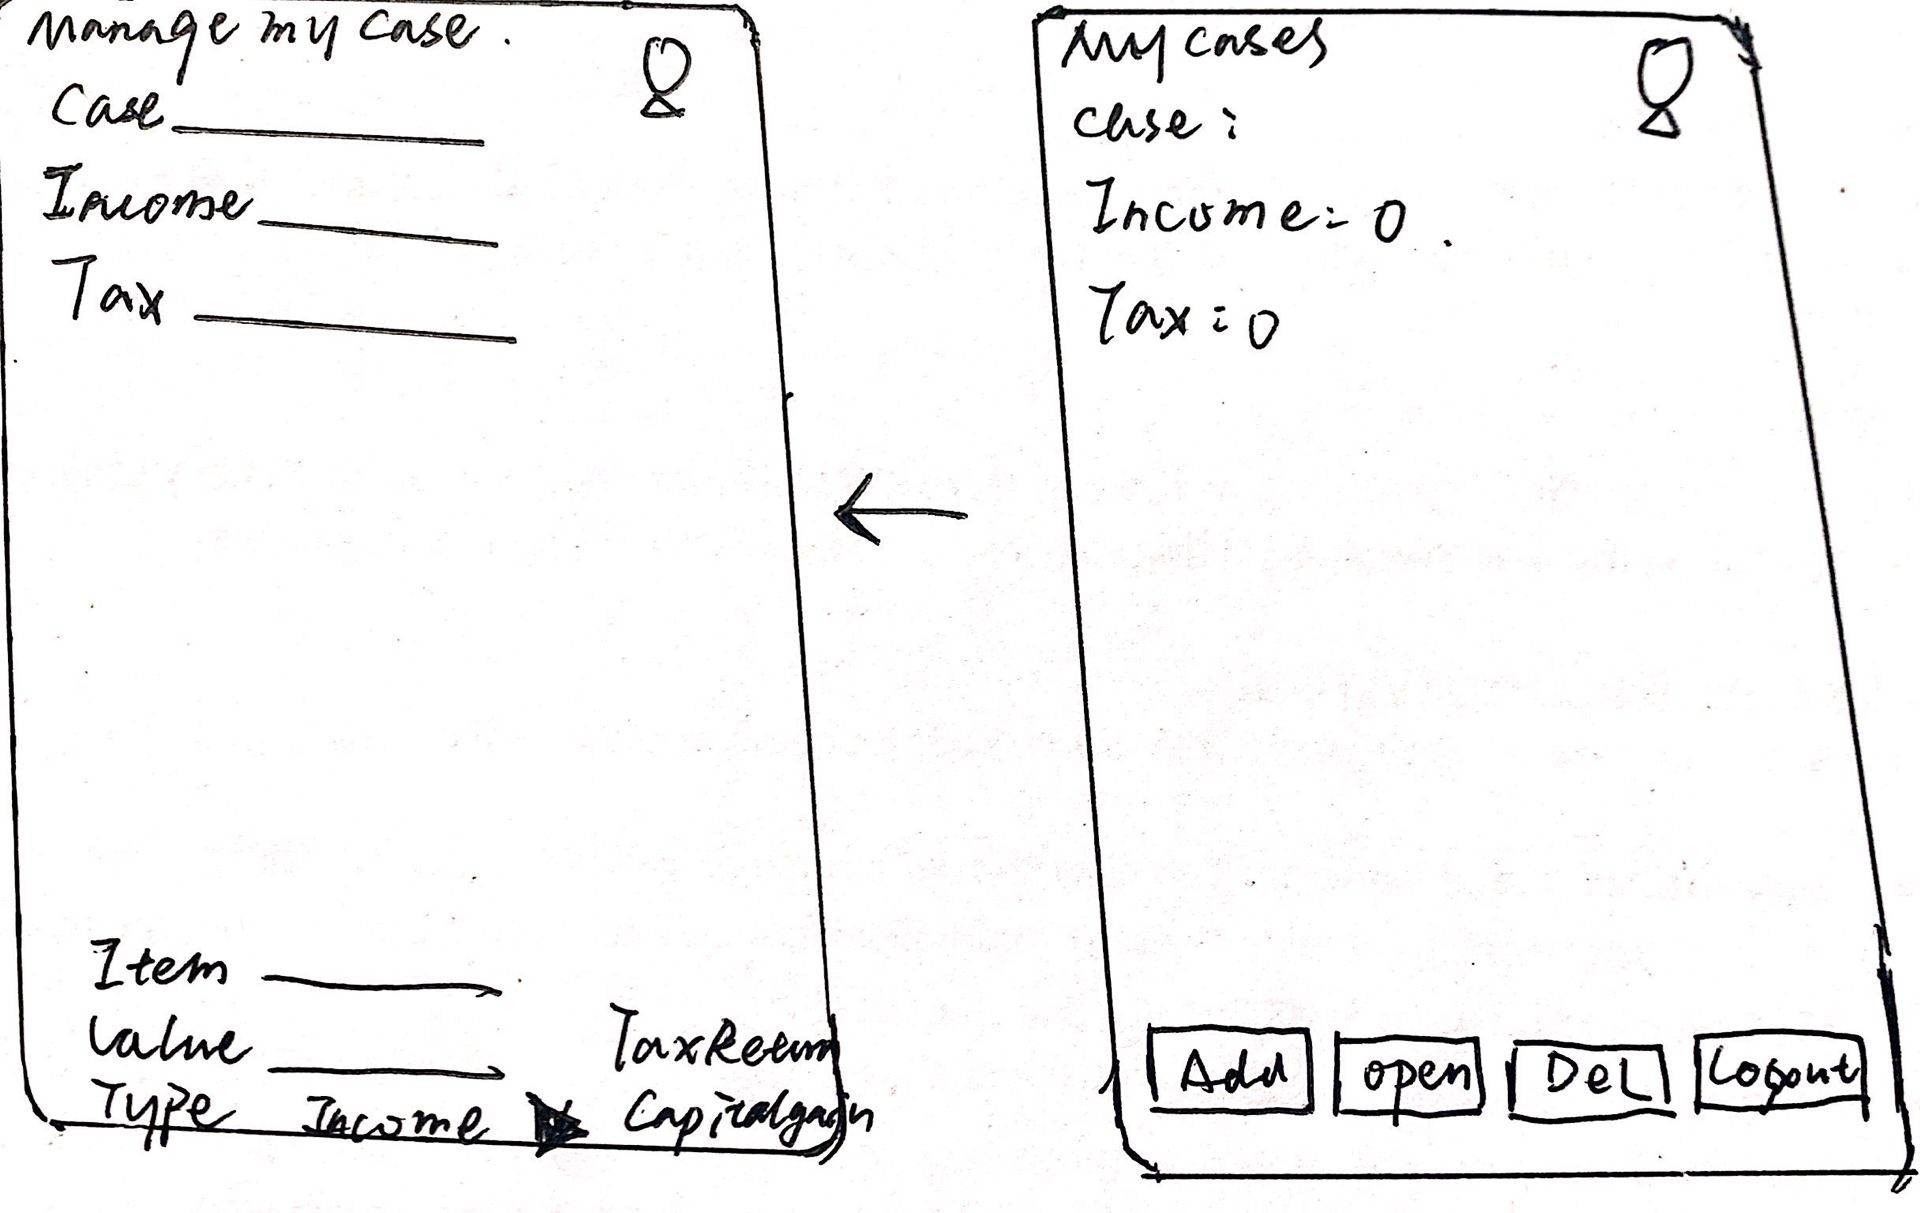 Manage my case.
Case
Income
Tax
Item
Value
Type Income
TaxReturn
Capitalgain
My cases
case:
Income: 0.
Tax: 0
Add
open
Del
Logout